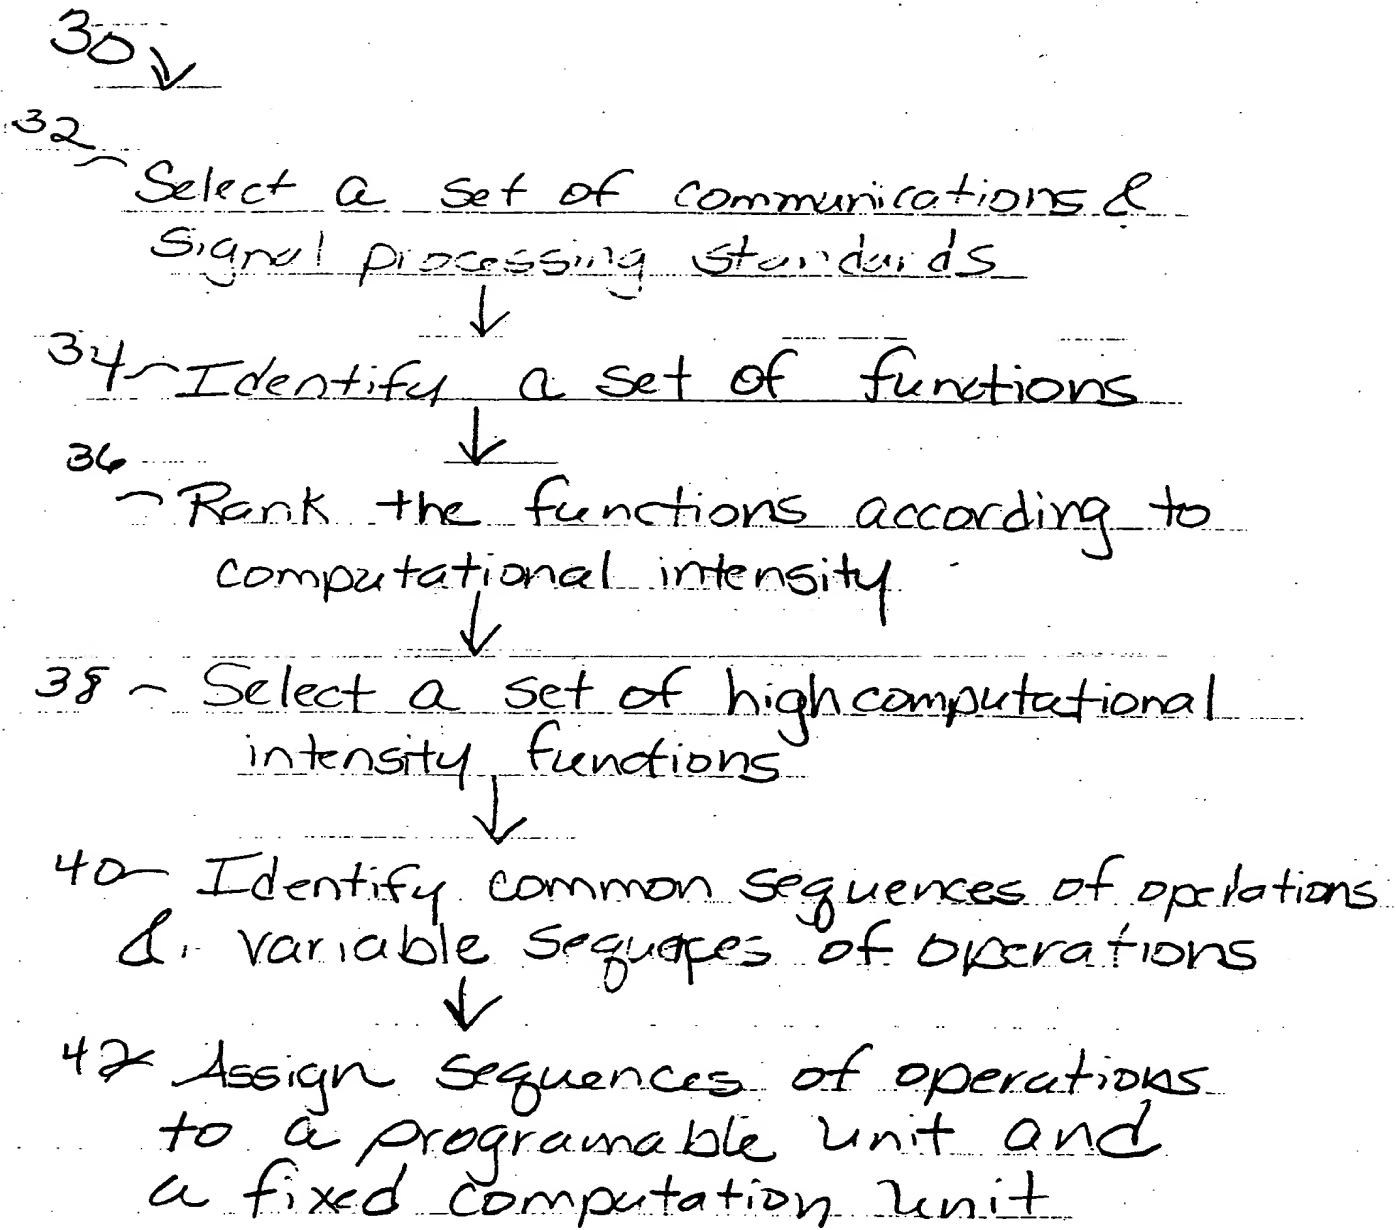 30
32
Select a set of communications &
signal processing standards
34 Identify a set of functions
36
Rank the functions according to
computational intensity
38 - Select a set of high computational
intensity functions
40 Identify common sequences of operations
& variable sequences of operations
42 Assign sequences of operations
to a programable unit and
a fixed computation unit